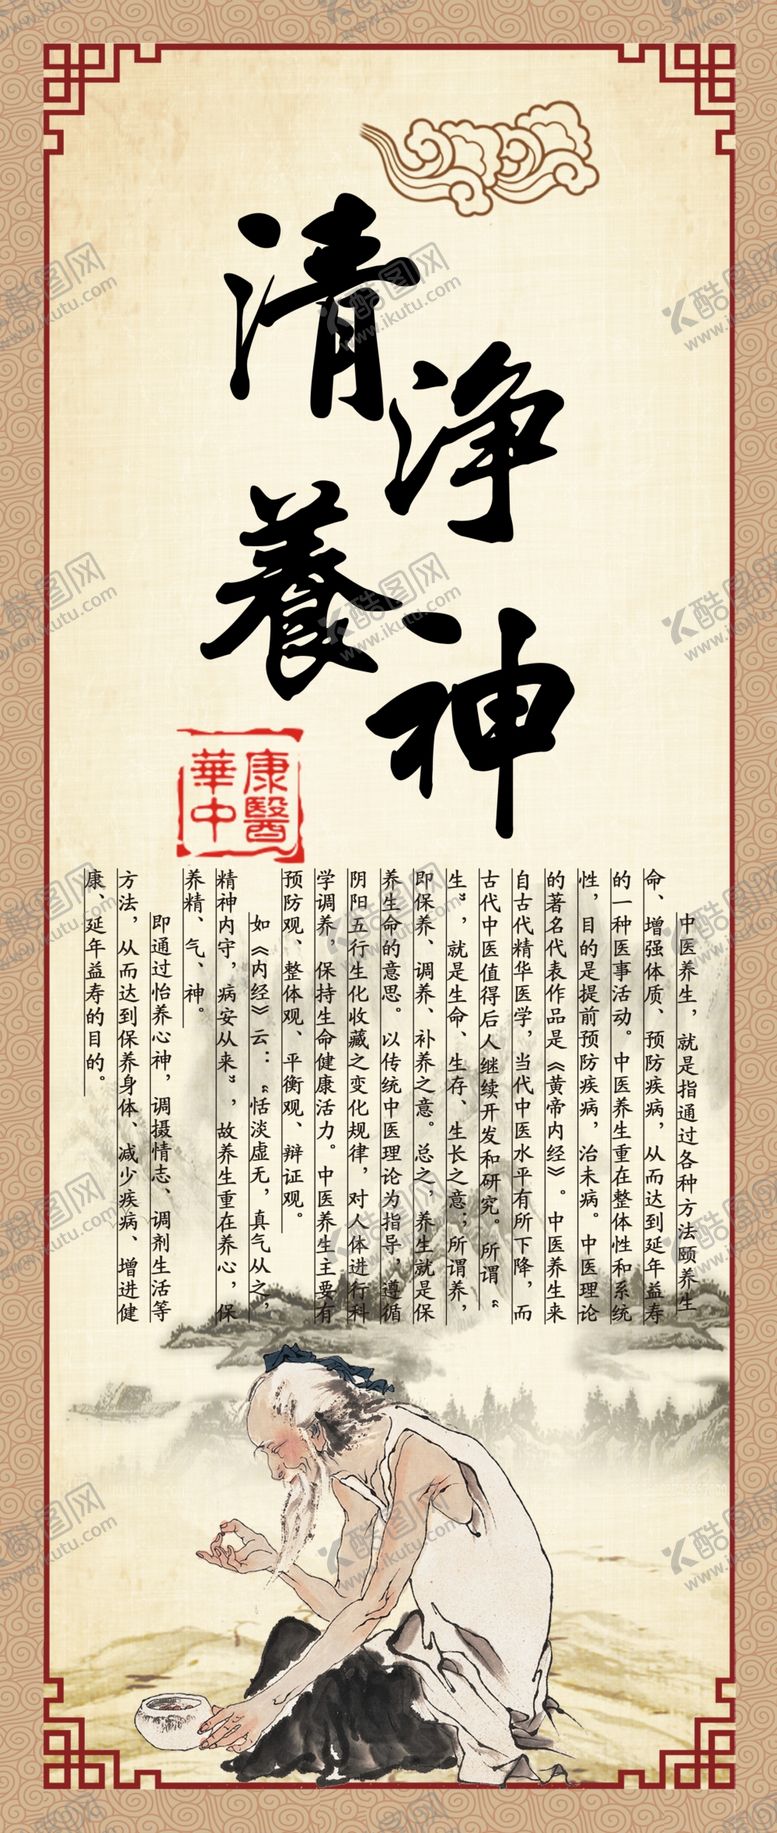 清
净
養
神
康醫
華中
中医养生，就是指通过各种方法颐养生
命、增强体质、预防疾病，从而达到延年益寿
的一种医事活动。中医养生重在整体性和系统
性，目的是提前预防疾病，治未病。中医理论
的著名代表作品是《黄帝内经》。中医养生来
自古代精华医学，当代中医水平有所下降，而
古代中医值得后人继续开发和研究。所谓“
生”，就是生命、生存、生长之意；所谓养，
即保养、调养、补养之意。总之，养生就是保
养生命的意思。以传统中医理论为指导，遵循
阴阳五行生化收藏之变化规律，对人体进行科
学调养，保持生命健康活力。中医养生主要有
预防观、整体观、平衡观、辩证观。
如《内经》云：“恬淡虚无，真气从之，
精神内守，病安从来”，故养生重在养心，保
养精、气、神。
即通过怡养心神，调摄情志、调剂生活等
方法，从而达到保养身体、减少疾病、增进健
康、延年益寿的目的。
酷图网
www.ikutu.com